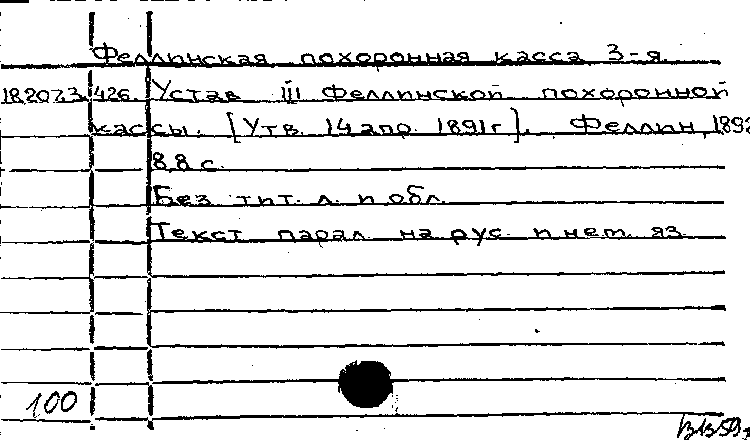 Феллинская похоронная касса 3-я.
18.207.3.426. Устав III Феллинской похоронной
кассы. [Утв. 14 апр. 1891 г]. Феллин, 1892
8,8 с.
Без тит. л. и обл.
Текст парал. на рус. и нем. яз.
100